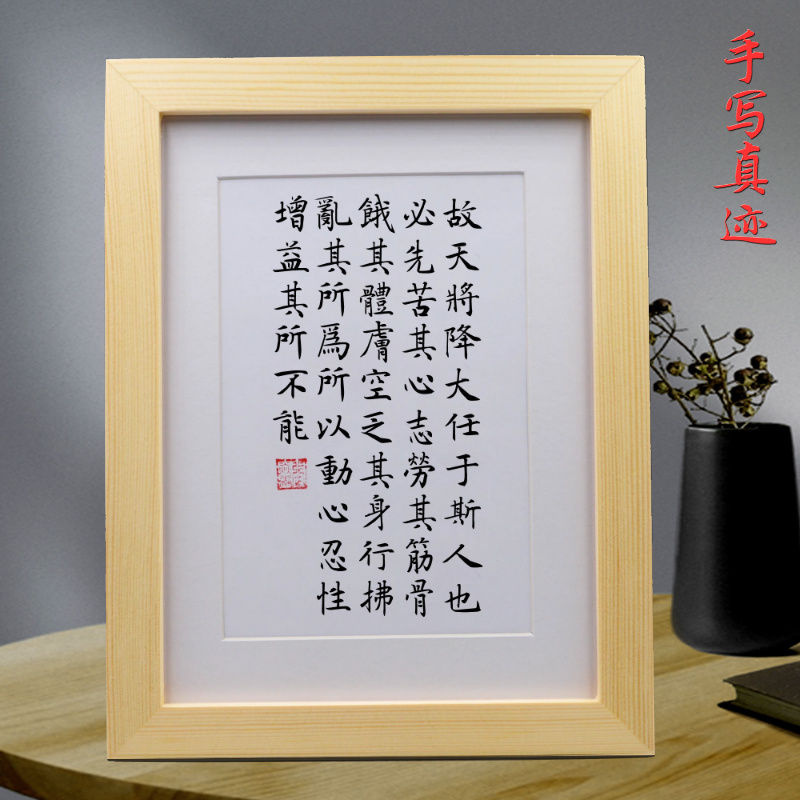 故天將降大任于斯人也
必先苦其心志勞其筋骨
餓其體膚空乏其身行拂
亂其所爲所以動心忍性
增益其所不能
手写真迹